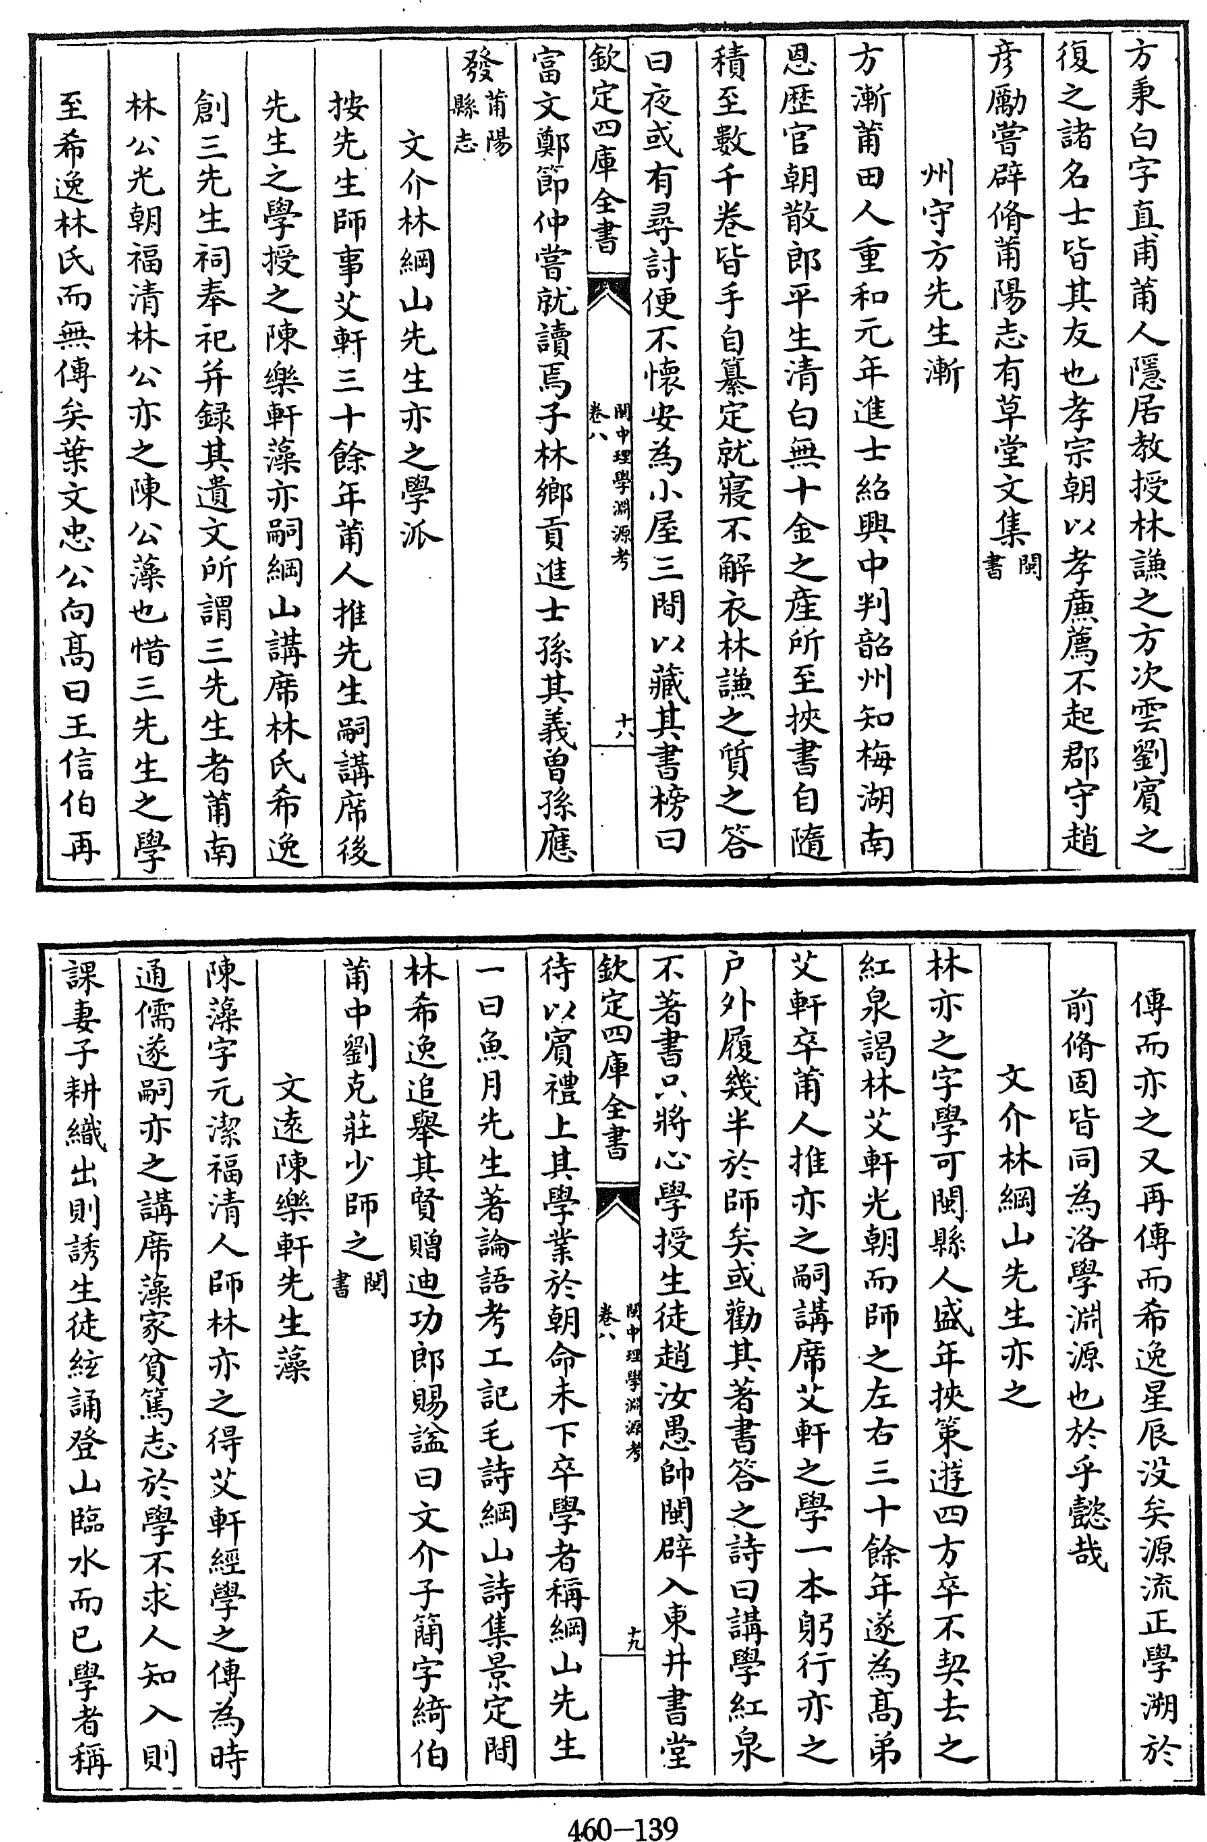 方秉白字直甫莆人隱居教授林謙之方次雲劉賓之
復之諸名士皆其友也孝宗朝以孝廉薦不起郡守趙
彦勵嘗辟脩莆陽志有草堂文集閩書
州守方先生漸
方漸莆田人重和元年進士紹興中判韶州知梅湖南
恩歷官朝散郎平生清白無十金之產所至挾書自隨
積至數千卷皆手自纂定就寢不解衣林謙之質之答
曰夜或有尋討便不懷安為小屋三間以藏其書榜曰
欽定四庫全書
閩中理學淵源考
卷八
十八
富文鄭節仲嘗就讀焉子林鄉貢進士孫其義曾孫應
發莆陽縣志
文介林綱山先生亦之學派
按先生師事艾軒三十餘年莆人推先生嗣講席後
先生之學授之陳樂軒藻亦嗣綱山講席林氏希逸
創三先生祠奉祀并錄其遺文所謂三先生者莆南
林公光朝福清林公亦之陳公藻也惜三先生之學
至希逸林氏而無傳矣葉文忠公向髙曰王信伯再
傳而亦之又再傳而希逸星辰没矣源流正學溯於
前脩固皆同為洛學淵源也於乎懿哉
文介林綱山先生亦之
林亦之字學可閩縣人盛年挾策遊四方卒不契去之
紅泉謁林艾軒光朝而師之左右三十餘年遂為髙弟
艾軒卒莆人推亦之嗣講席艾軒之學一本躬行亦之
户外履幾半於師矣或勸其著書答之詩曰講學紅泉
不著書只將心學授生徒趙汝愚帥閩辟入東井書堂
欽定四庫全書
閩中理學淵源考
卷八
十九
待以賓禮上其學業於朝命未下卒學者稱綱山先生
一曰魚月先生著論語考工記毛詩綱山詩集景定間
林希逸追舉其賢贈迪功郎賜諡曰文介子簡字綺伯
莆中劉克莊少師之閩書
文遠陳樂軒先生藻
陳藻字元潔福清人師林亦之得艾軒經學之傳為時
通儒遂嗣亦之講席藻家貧篤志於學不求人知入則
課妻子耕織出則誘生徒絃誦登山臨水而已學者稱
460—139